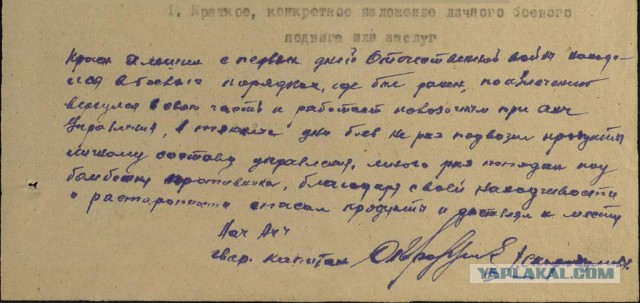 I. Краткое, конкретное изложение личного боевого
подвига или заслуг
с первых дней Отечественной войны находи-
лся в боевых порядках, где был ранен, по излечению
вернулся в свою часть и работает повозочным при АХЧ
Управления, в тяжелые дни боев не раз подвозил продукты
личному составу управления, много раз попадал под
бомбежку противника, благодаря своей находчивости
и расторопности спасал продукты и доставлял к месту
Нач АХЧ
гвар. капитан
YAPLAKAL.COM